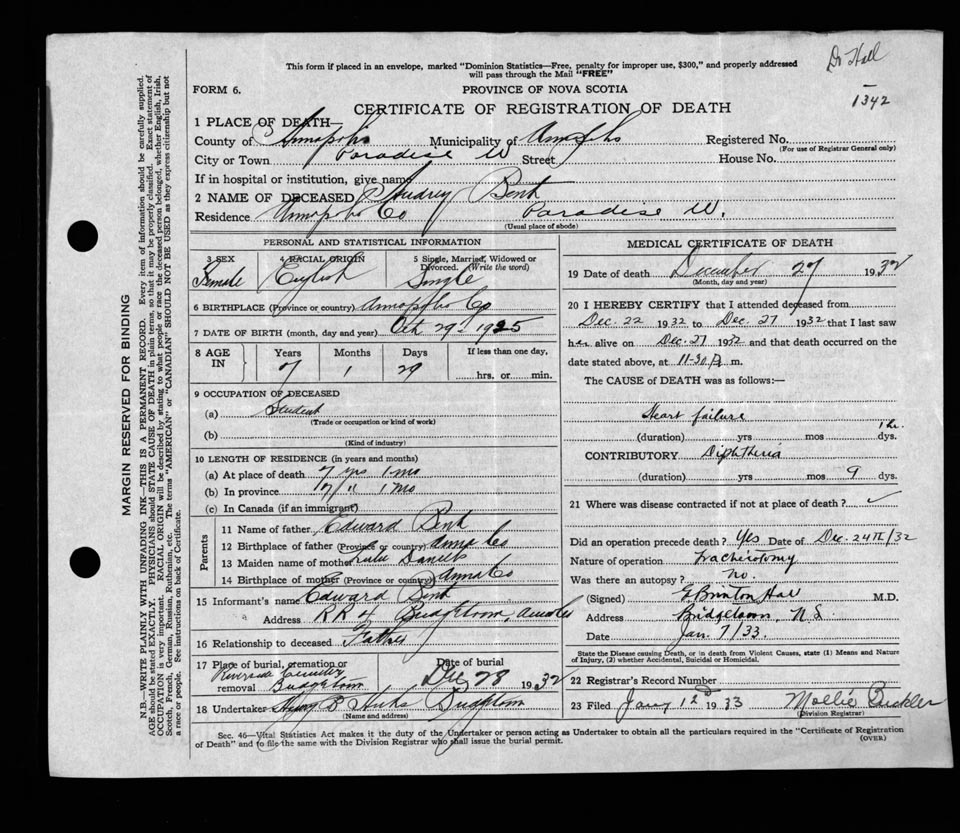 Dr Hall
1342
This form if placed in an envelope, marked "Dominion Statistics—Free, penalty for improper use, $300," and properly addressed
will pass through the Mail "FREE"
FORM 6.
PROVINCE OF NOVA SCOTIA
CERTIFICATE OF REGISTRATION OF DEATH
1 PLACE OF DEATH
County of Annapolis Municipality of Annapolis Registered No.
(For use of Registrar General only)
City or Town Paradise W Street House No.
If in hospital or institution, give name
2 NAME OF DECEASED Audrey Bent
Residence Annapolis Co Paradise W.
(Usual place of abode)
PERSONAL AND STATISTICAL INFORMATION
3 SEX 4 RACIAL ORIGIN 5 Single, Married, Widowed or
Divorced. (Write the word)
Female English Single
6 BIRTHPLACE (Province or country) Annapolis Co
7 DATE OF BIRTH (month, day and year) Oct 29 - 1925
8 AGE IN Years Months Days If less than one day,
7 1 29 hrs. or min.
9 OCCUPATION OF DECEASED
(a) Student
(Trade or occupation or kind of work)
(b)
(Kind of industry)
10 LENGTH OF RESIDENCE (in years and months)
(a) At place of death 7 yrs 1 mo
(b) In province 7 " 1 mo
(c) In Canada (if an immigrant)
Parents
11 Name of father Edward Bent
12 Birthplace of father (Province or country) Anna Co
13 Maiden name of mother Lulu Daniels
14 Birthplace of mother (Province or country) Anna Co
15 Informant's name Edward Bent
Address RR Bridgetown, Annapolis
16 Relationship to deceased Father
17 Place of burial, cremation or removal Date of burial
Riverside Cemetery
Bridgetown Dec 28 1932
18 Undertaker B Hicks Bridgetown
(Name and address)
MEDICAL CERTIFICATE OF DEATH
19 Date of death December 27 1932
(Month, day and year)
20 I HEREBY CERTIFY that I attended deceased from
Dec. 22 1932 to Dec. 27 1932 that I last saw
her alive on Dec. 27 1932 and that death occurred on the
date stated above, at 11-30 P. m.
The CAUSE OF DEATH was as follows:
Heart failure
1 hr.
(duration) yrs mos dys.
CONTRIBUTORY Diphtheria
(duration) yrs mos 9 dys.
21 Where was disease contracted if not at place of death?
Did an operation precede death? Yes Date of Dec. 24th/32
Nature of operation Tracheotomy
Was there an autopsy? No.
(Signed) E Brinton Hall M.D.
Address Bridgetown, N.S.
Date Jan. 7/33.
State the Disease causing Death, or in death from Violent Causes, state (1) Means and Nature
of Injury, (2) whether Accidental, Suicidal or Homicidal.
22 Registrar's Record Number
23 Filed Jany 12 1933 Mollie
(Division Registrar)
Sec. 46—Vital Statistics Act makes it the duty of the Undertaker or person acting as Undertaker to obtain all the particulars required in the "Certificate of Registration
of Death" and to file the same with the Division Registrar who shall issue the burial permit.
(OVER)
MARGIN RESERVED FOR BINDING
N.B.—WRITE PLAINLY WITH UNFADING INK—THIS IS A PERMANENT RECORD. Every item of information should be carefully supplied.
AGE should be stated EXACTLY. PHYSICIANS should STATE CAUSE OF DEATH in plain terms, so that it may be properly classified. Exact statement of
OCCUPATION is very important. RACIAL ORIGIN will be described by stating to what people or race the deceased person belonged, whether English, Irish,
Scotch, French, German, Russian, Ruthenian, etc. The terms "AMERICAN" or "CANADIAN" SHOULD NOT BE USED as they express citizenship but not
a race or people. See instructions on back of Certificate.